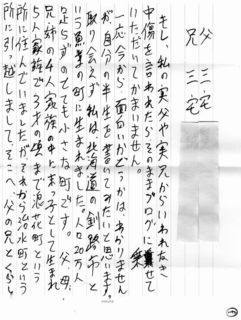 父 三宅
兄 三宅
もし、私の実父や実兄からいわれなき
中傷を言われたらそのままブログに乗せて
いただいてかまいません。
一応今から、面白いかどうかは、わかりません
が、自分の半生を書いてみたいと思います。
取り会えず、私は、北海道の釧路市と
いう漁業の町に生まれました。人口20万人
足らずのとても小さな町です。父、母、
兄、姉の4人家族の中に末っ子として生まれ
5人家族で3才の頃まで浪花町という
所に住んでいましたが、それから治水町という
所に引っ越しまして、そこへ、父の兄とくらし